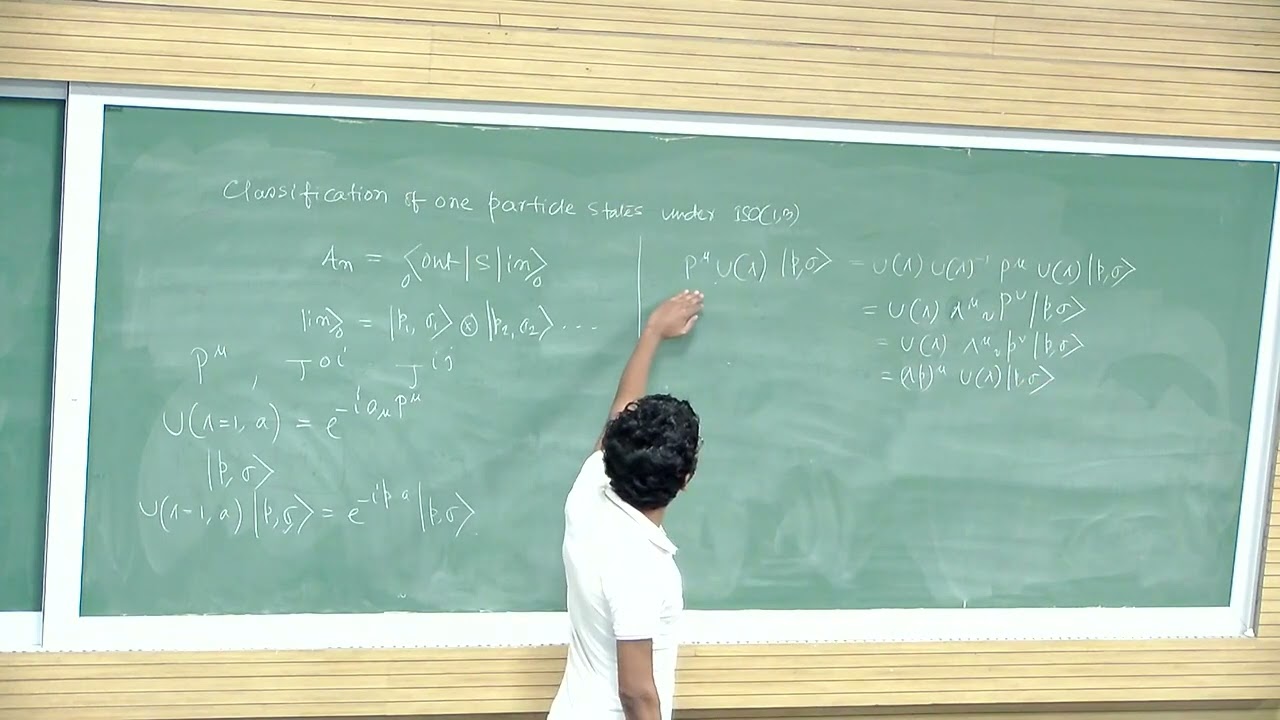 Classification of one particle states under ISO(1,3)
Aₙ = ₀⟨out|S|in⟩₀
|in⟩₀ = |p₁, σ₁⟩ ⊗ |p₂, σ₂⟩ ...
P^μ , J^{0i} J^{ij}
U(Λ=1, a) = e^{-i a_μ P^μ}
|p, σ⟩
U(Λ=1, a) |p, σ⟩ = e^{-i p·a} |p, σ⟩
P^μ U(Λ) |p, σ⟩ = U(Λ) U(Λ)^{-1} P^μ U(Λ) |p, σ⟩
= U(Λ) Λ^μ_ν P^ν |p, σ⟩
= U(Λ) Λ^μ_ν p^ν |p, σ⟩
= (Λp)^μ U(Λ) |p, σ⟩